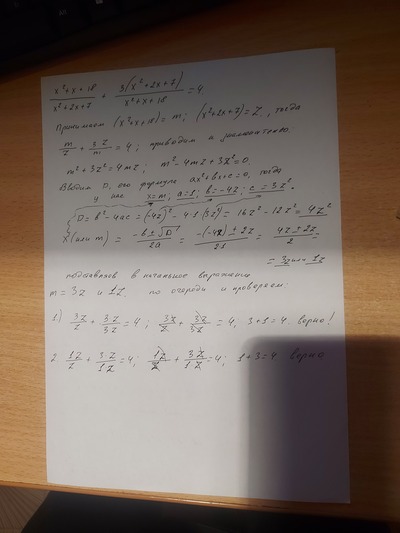 (x²+x+18)/(x²+2x+7) + 3(x²+2x+7)/(x²+x+18) = 4.
Принимаем (x²+x+18) = m; (x²+2x+7) = Z, тогда
m/Z + 3Z/m = 4; приводим к
m² + 3Z² = 4mZ; m² - 4mZ + 3Z² = 0.
Вводим D, его формула ax²+bx+c=0, тогда
у нас x=m; a=1; b=-4Z; c=3Z².
D = b² - 4ac = (-4Z)² - 4·1·(3Z²) = 16Z² - 12Z² = 4Z²
X(или m) = (-b±√D)/2a = (-(-4Z) ± 2Z)/2·1 = (4Z ± 2Z)/2
= 3Z или 1Z
подставляем в начальное выражение
m = 3Z и 1Z. по очереди и проверяем:
1.) 3Z/Z + 3Z/3Z = 4; 3Z/Z + 3Z/3Z = 4, 3+1=4. верно!
2. 1Z/Z + 3Z/1Z = 4; 1Z/Z + 3Z/1Z = 4; 1+3=4 верно